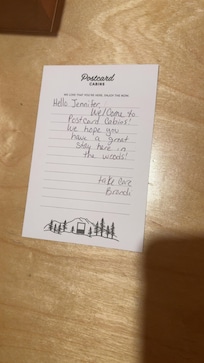 Postcard
CABINS
WE LOVE THAT YOU'RE HERE. ENJOY THE NOW.
Hello Jennifer,
Welcome to
Postcard Cabins!
We hope you
have a great
stay here in
the woods!
Take Care
Brandi